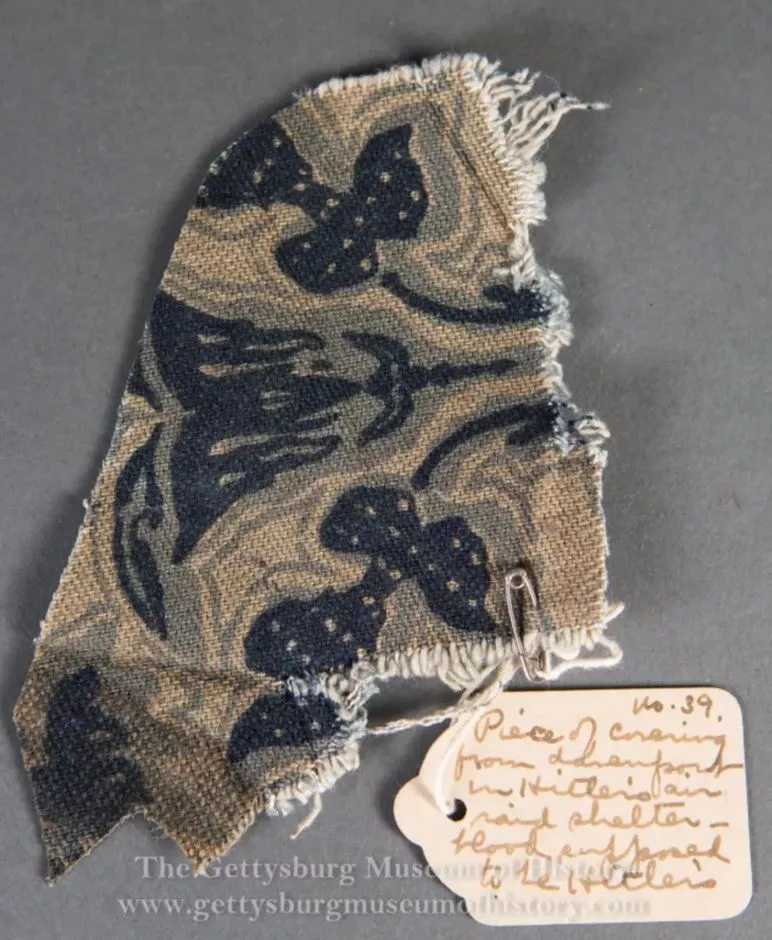 no. 39.
Piece of covering
from davenport
in Hitler's air
raid shelter –
blood supposed
to be Hitler's
The Gettysburg Museum of History
www.gettysburgmuseumofhistory.com